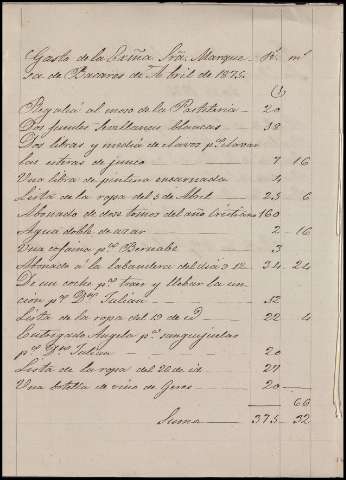 Gasto de la Exma Sra. Marque- Rs. ms
sa de Bacares de Abril de 1875.
Regalia al moso de la Pasteleria — 20
Dos fuentes Sevillanas blancas — 38
Dos libras y media de clavos pa. clavar
las esteras de junco — 7 16
Una libra de pintura encarnada — 4
Lista de la ropa del 5 de Abril — 25 6
Abonado de dos tomos del año Cristiano 160
Agua doble de azar — 2 16
Una cofaina pa. Bernabé — 3
Abonado á la labandera del dia 3 12 34 24
De un coche pa. traer y llebar la un-
cion pa. Dn. Julian — 12
Lista de la ropa del 19 de id — 22 4
Entregado Angela pa. sanguijuelas
pa. Dn. Julian — 20
Lista de la ropa del 26 de id — 27
Una botella de vino de Geres — 20
66
Suma — 375 32